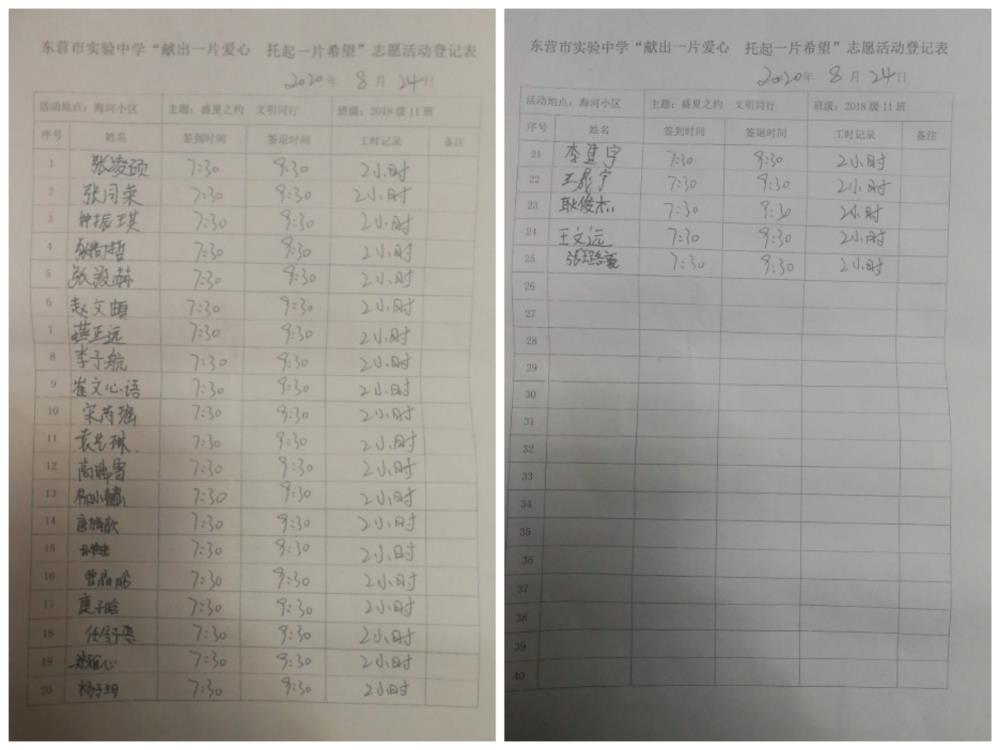 东营市实验中学“献出一片爱心 托起一片希望”志愿活动登记表
2020年 8 月 24日
活动地点：海河小区 主题：盛夏之约 文明同行 班级：2018级11班
序号 姓名 签到时间 签退时间 工时记录 备注
1 张凌硕 7:30 9:30 2小时
2 张同荣 7:30 9:30 2小时
3 钟振琪 7:30 9:30 2小时
4 7:30 9:30 2小时
5 7:30 9:30 2小时
6 赵文頔 7:30 9:30 2小时
7 燕正远 7:30 9:30 2小时
8 李子航 7:30 9:30 2小时
9 崔文心语 7:30 9:30 2小时
10 宋芮瑶 7:30 9:30 2小时
11 袁艺琳 7:30 9:30 2小时
12 7:30 9:30 2小时
13 7:30 9:30 2小时
14 7:30 9:30 2小时
15 7:30 9:30 2小时
16 7:30 9:30 2小时
17 7:30 9:30 2小时
18 7:30 9:30 2小时
19 7:30 9:30 2小时
20 7:30 9:30 2小时
东营市实验中学“献出一片爱心 托起一片希望”志愿活动登记表
2020年 8 月 24日
活动地点：海河小区 主题：盛夏之约 文明同行 班级：2018级11班
序号 姓名 签到时间 签退时间 工时记录 备注
21 李建宇 7:30 9:30 2小时
22 7:30 9:30 2小时
23 耿俊杰 7:30 9:30 2小时
24 王文远 7:30 9:30 2小时
25 7:30 9:30 2小时
26
27
28
29
30
31
32
33
34
35
36
37
38
39
40